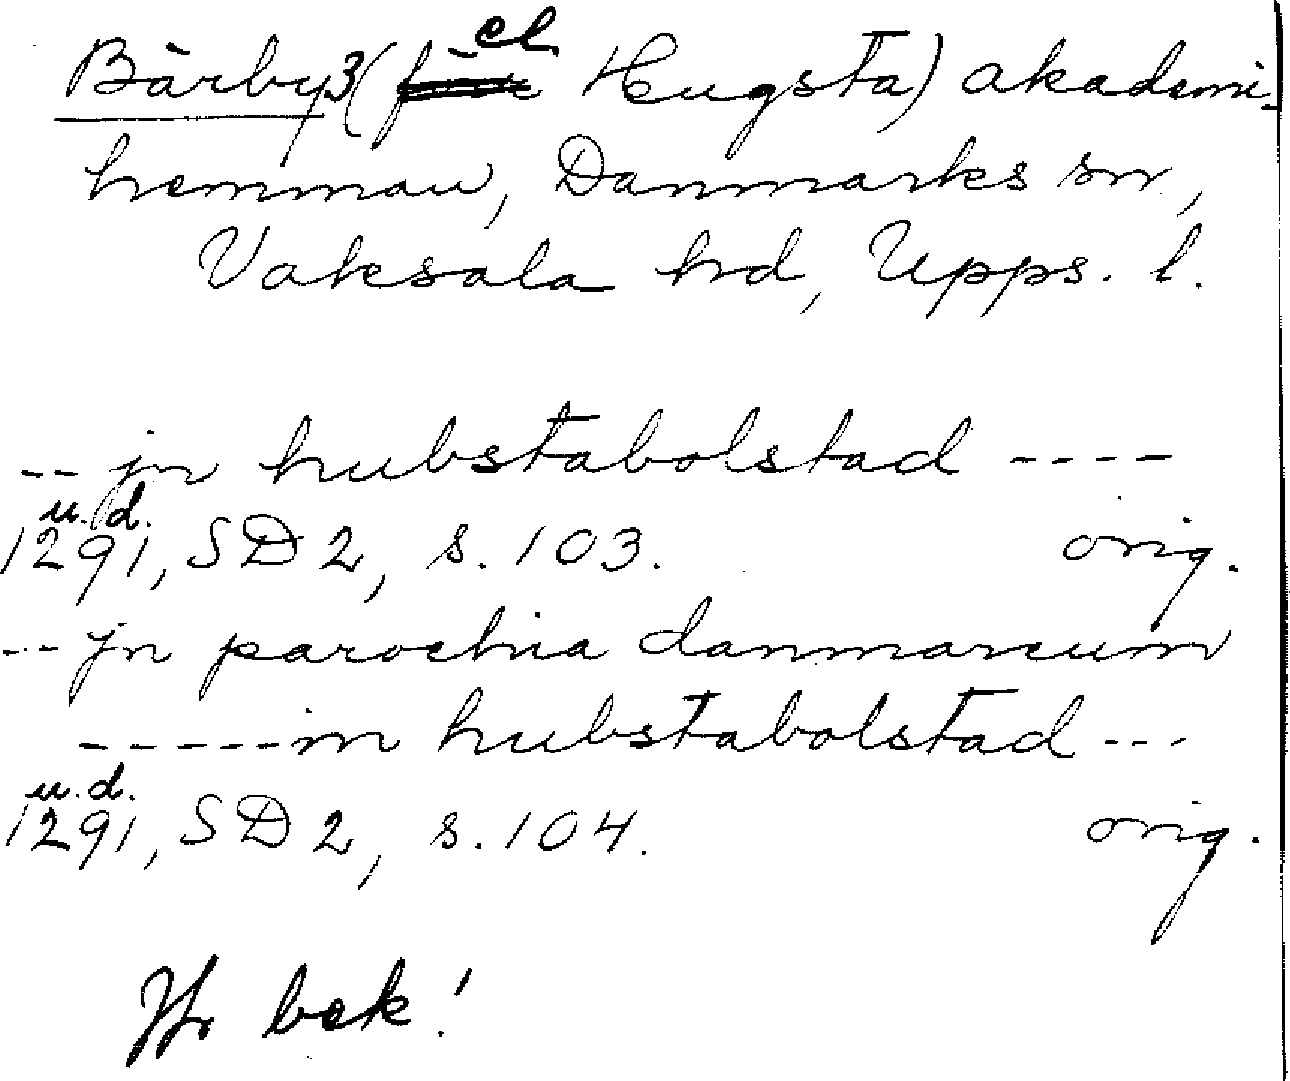 Bärby 3 (el Hugsta) akademi-
hemman, Danmarks sn,
Vaksala hd, Upps. l.
-- jn hubstabolstad ----
u.d.
1291, SD 2, s. 103. orig.
-- jn parochia danmarcum
-----in hubstabolstad ---
u.d.
1291, SD 2, s. 104. orig.
Jfr bek!